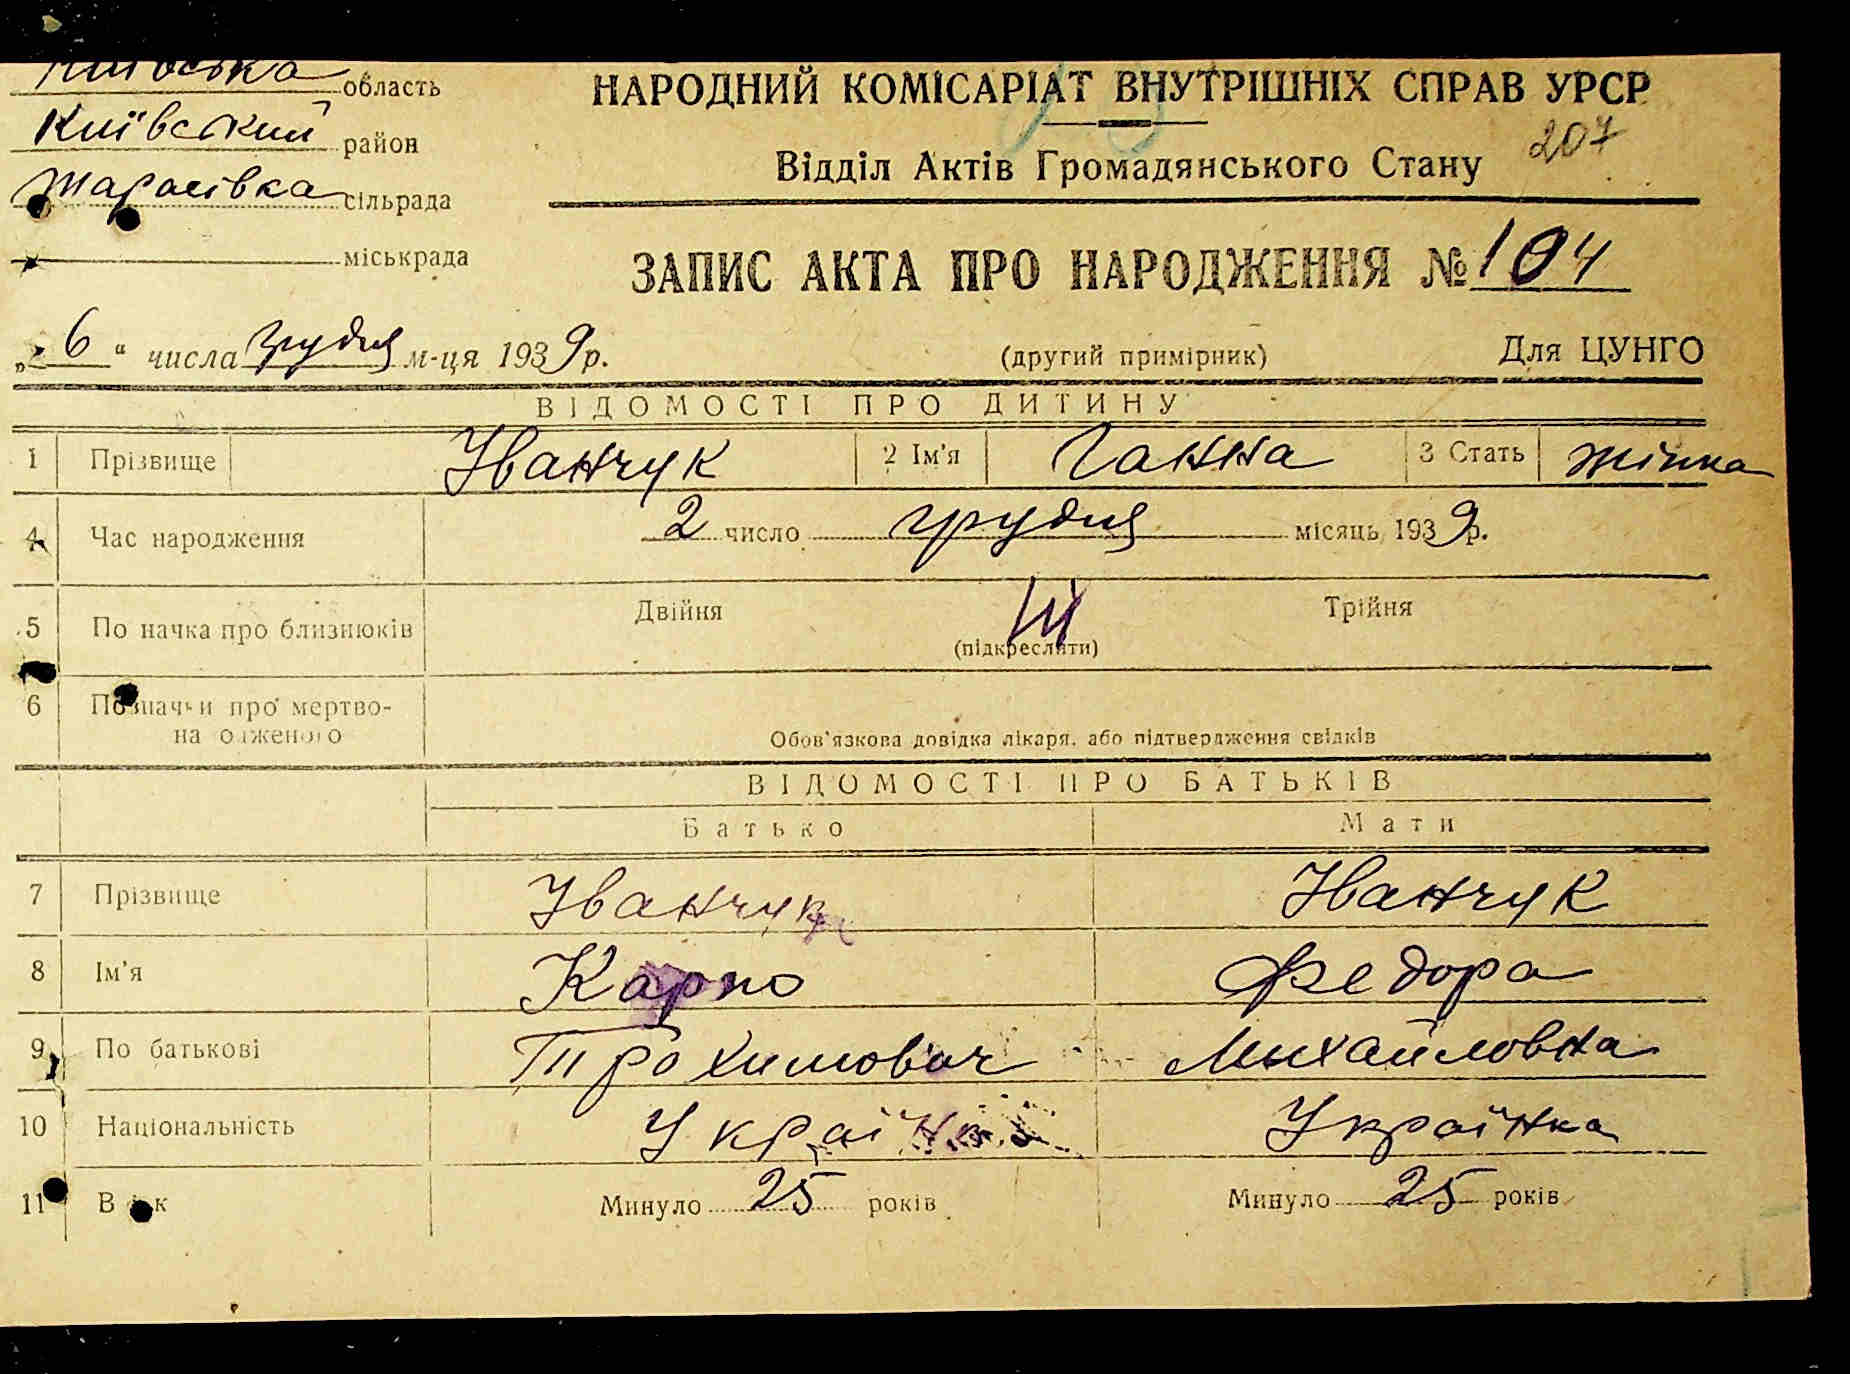 Київська область
Київський район
Тарасівка сільрада
міськрада
НАРОДНИЙ КОМІСАРІАТ ВНУТРІШНІХ СПРАВ УРСР
207
Відділ Актів Громадянського Стану
ЗАПИС АКТА ПРО НАРОДЖЕННЯ № 104
„6“ числа грудня м-ця 1939 р.
(другий примірник)
Для ЦУНГО
ВІДОМОСТІ ПРО ДИТИНУ
1 Прізвище Іванчук 2 Ім'я Ганна 3 Стать жінка
4 Час народження 2 число грудня місяць 1939 р.
5 По начка про близнюків Двійня Трійня
(підкреслити)
6 Позначки про мертво-
на о дженого Обов'язкова довідка лікаря, або підтвердження свідків
ВІДОМОСТІ ПРО БАТЬКІВ
Батько Мати
7 Прізвище Іванчук Іванчук
8 Ім'я Карпо Федора
9 По батькові Трохимович Михайловна
10 Національність Українка
11 Вік Минуло 25 років Минуло 25 років